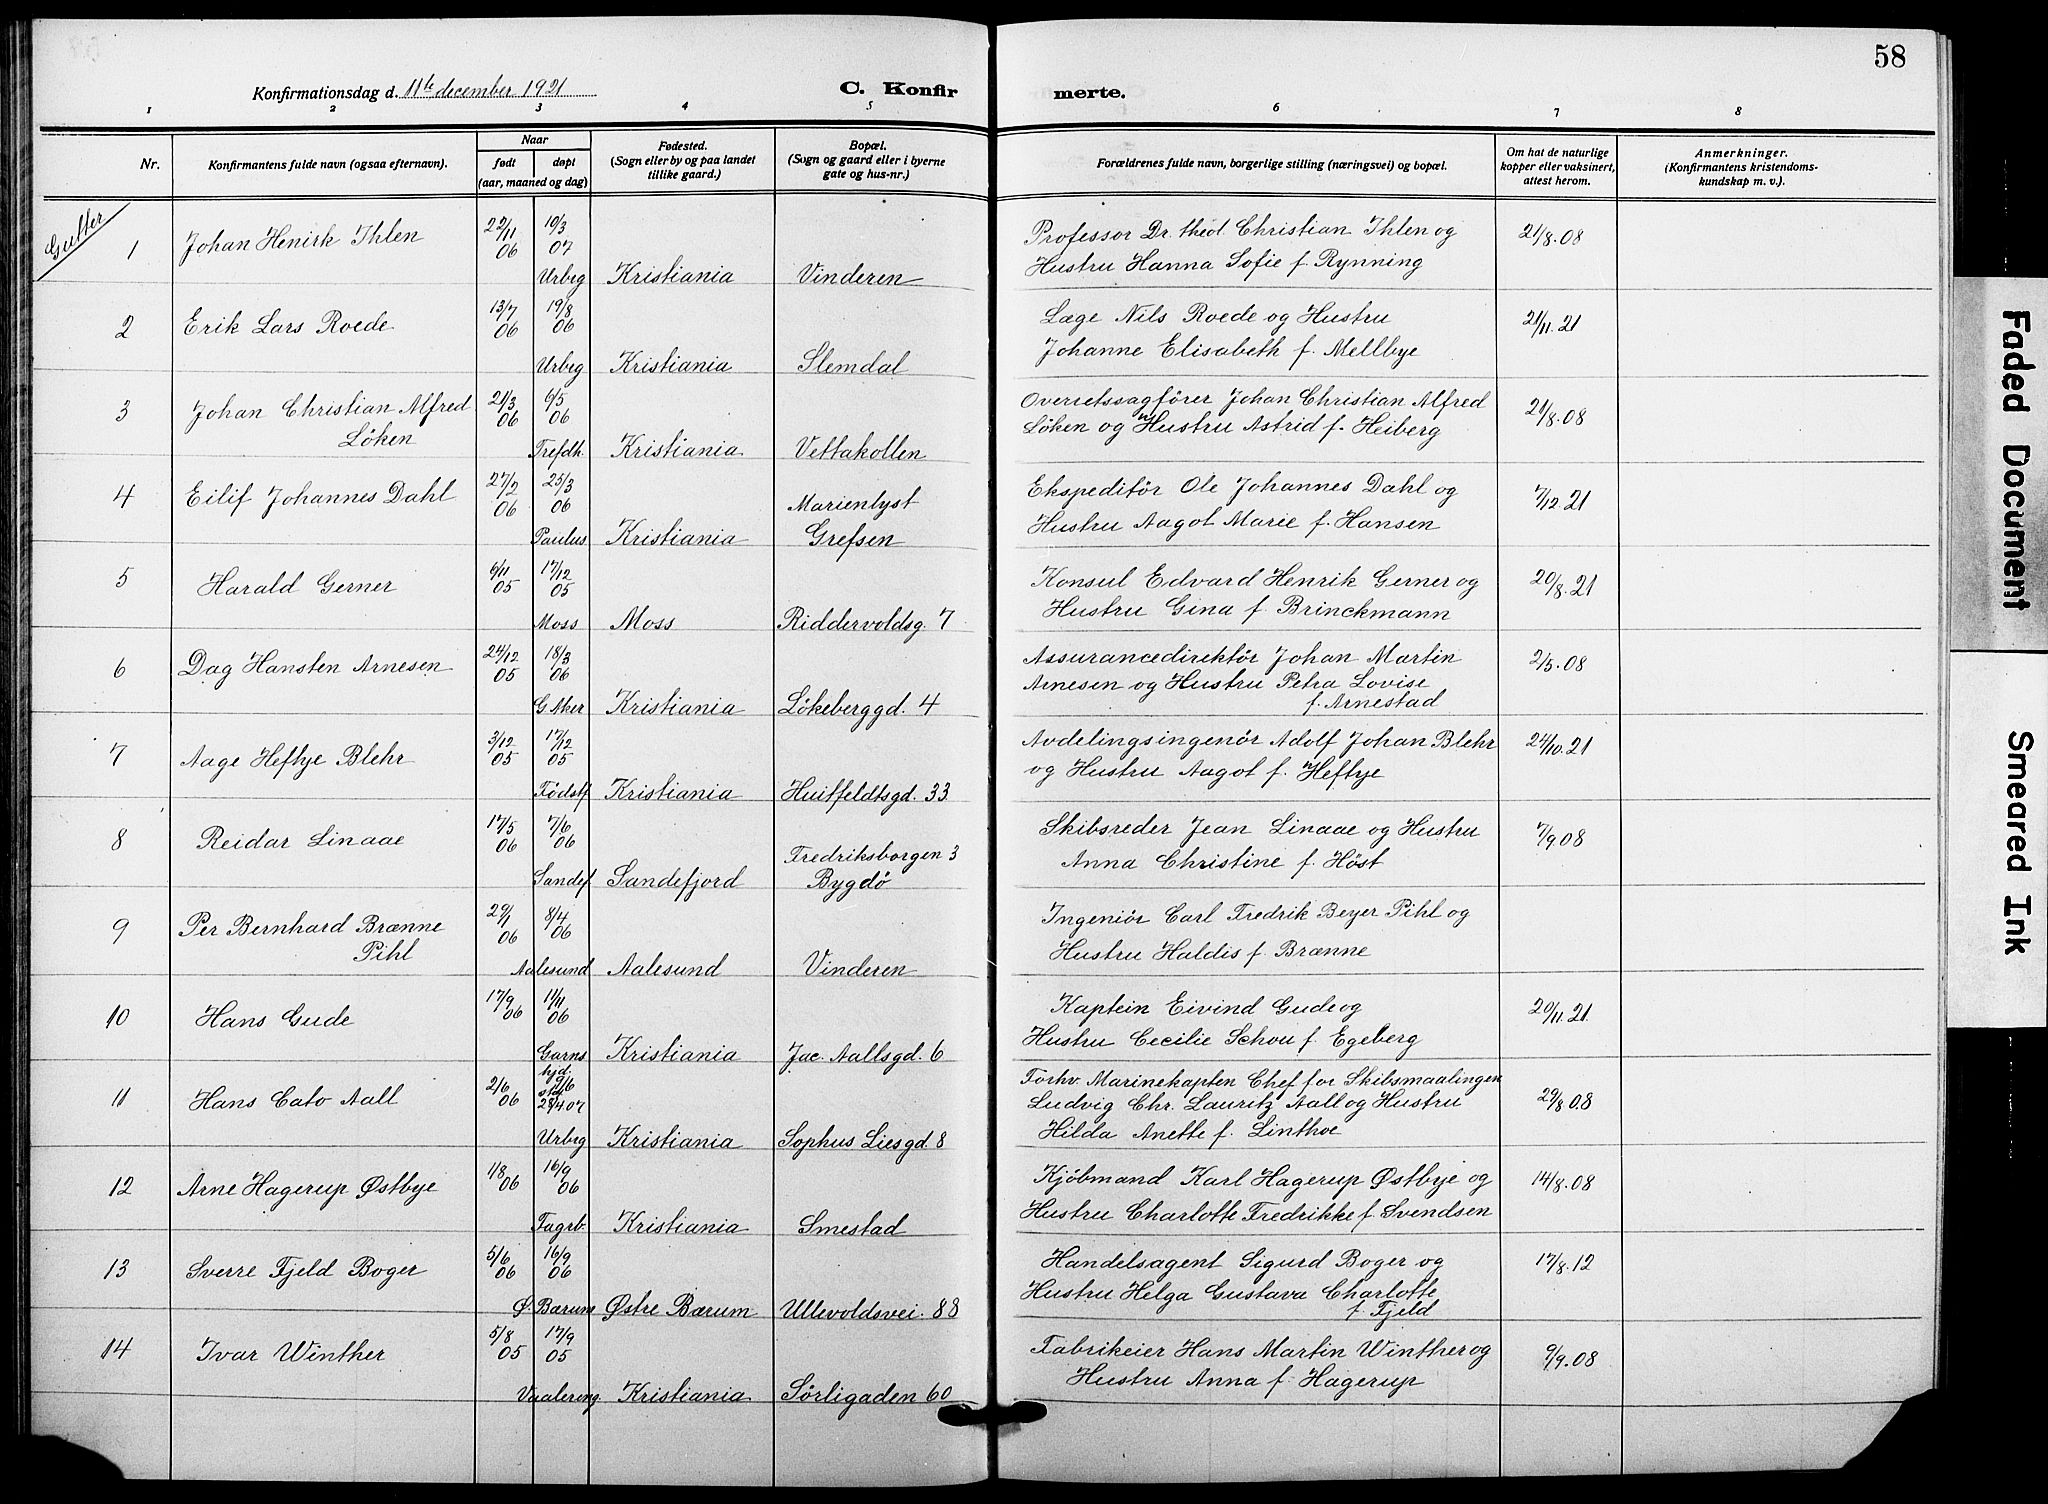 58
Konfirmationsdag d. 11te december 1921
C. Konfir merte.
1 2 3 4 5 6 7 8
Nr.
Konfirmantens fulde navn (ogsaa efternavn).
Naar
født døpt
(aar, maaned og dag)
Fødested.
(Sogn eller by og paa landet
tillike gaard.)
Bopæl.
(Sogn og gaard eller i byerne
gate og hus-nr.)
Forældrenes fulde navn, borgerlige stilling (næringsvei) og bopæl.
Om hat de naturlige
kopper eller vaksinert,
attest herom.
Anmerkninger.
(Konfirmantens kristendoms-
kundskap m. v.).
Gutter
1 Johan Henirk Ihlen 22/11 06 10/3 07 Professor Dr. theol. Christian Ihlen og 21/8.08
Urbrg Kristiania Vinderen Hustru Hanna Sofie f. Rynning
2 Erik Lars Roede 13/7 06 19/8 06 Læge Nils Roede og Hustru 21/11.21
Urbrg Kristiania Slemdal Johanne Elisabeth f. Mellbye
3 Johan Christian Alfred 21/3 06 6/5 06 Overretssagfører Johan Christian Alfred 21/8.08
Løken Trefdh. Kristiania Vettakollen Løken og Hustru Astrid f. Heiberg
4 Eilif Johannes Dahl 27/2 06 25/3 06 Marienlyst Ekspeditør Ole Johannes Dahl og 7/12.21
Paulus Kristiania Grefsen Hustru Aagot Marie f. Hansen
5 Harald Gerner 6/11 05 17/12 05 Konsul Edvard Henrik Gerner og 20/8.21
Moss Moss Riddervoldsg. 7 Hustru Gina f. Brinckmann
6 Dag Hansten Arnesen 24/12 05 18/3 06 Assurancedirektør Johan Martin 2/5.08
G Aker Kristiania Løkeberggd. 4 Arnesen og Hustru Petra Lovise
f. Arnestad
7 Aage Heftye Blehr 3/12 05 17/12 05 Avdelingsingenør Adolf Johan Blehr 24/10.21
Fødstf Kristiania Huitfeldtsgd. 33 og Hustru Aagot f. Heftye
8 Reidar Linaae 17/5 06 7/6 06 Fredriksborgen 3 Skibsreder Jean Linaae og Hustru 7/9.08
Sandef Sandefjord Bygdø Anna Christine f. Høst
9 Per Bernhard Brænne 29/1 06 8/4 06 Ingeniør Carl Fredrik Beyer Pihl og
Pihl Aalesund Aalesund Vinderen Hustru Haldis f. Brænne
10 Hans Gude 17/9 06 11/11 06 Kaptein Eivind Gude og 20/11.21.
Garns Kristiania Jac. Aallsgd. 6 Hustru Cecilie Schou f. Egeberg
11 Hans Cato Aall 2/6 06 hjd. 9/6 stf 28/4 07 Forhv. Marinekapten Chef for Skibsmaalingen 29/8 08
Ludvig Chr. Lauritz Aall og Hustru
Urbrg Kristiania Sophus Liesgd. 8 Hilda Anette f. Linthoe
12 Arne Hagerup Østbye 1/8 06 16/9 06 Kjøbmand Karl Hagerup Østbye og 14/8.08
Fagrb. Kristiania Smestad Hustru Charlotte Fredrikke f. Svendsen
13 Sverre Fjeld Boger 5/6 06 16/9 06 Handelsagent Sigurd Boger og 17/8.12
Ø. Bærum Østre Bærum Ullevoldsvei. 88 Hustru Helga Gustava Charlotte
f. Fjeld
14 Ivar Winther 5/8 05 17/9 05 Fabrikeier Hans Martin Winther og 9/9.08
Vaalereng. Kristiania Sørligaden 60 Hustru Anna f. Hagerup
Faded Document
Smeared Ink